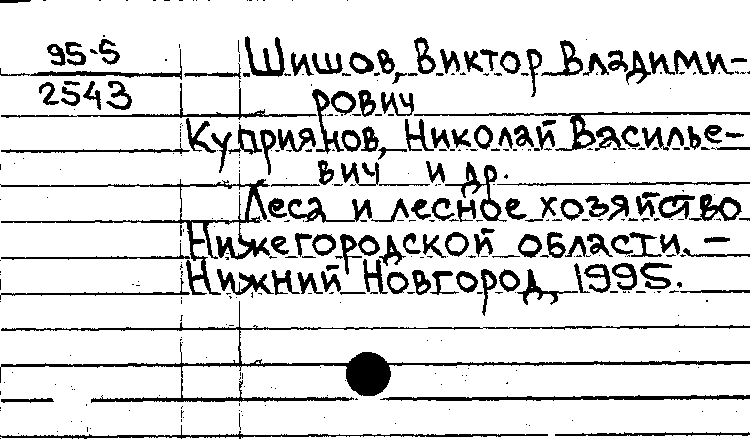 95-5
2543
Шишов, Виктор Владими-
рович
Куприянов, Николай Василье-
вич и др.
Леса и лесное хозяйство
Нижегородской области. —
Нижний Новгород, 1995.